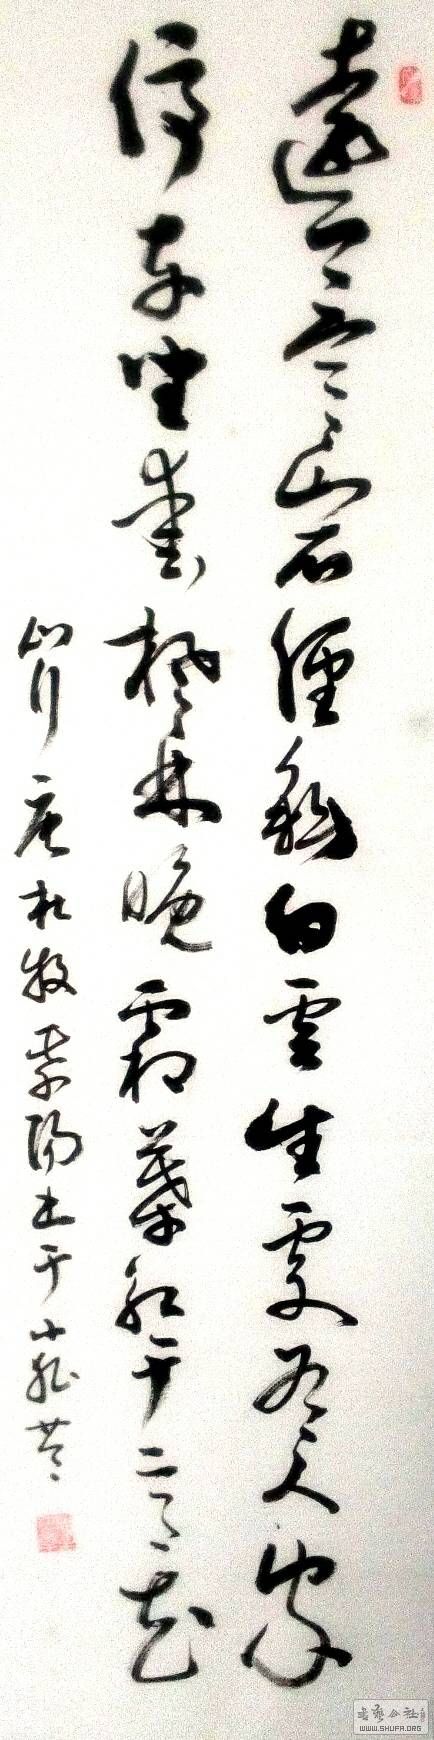 遠上寒山石徑斜白雲生處有人家
停車坐愛楓林晚霜葉紅于二月花
山行 唐杜牧 陽書于
书艺公社
WWW.SHUFA.ORG